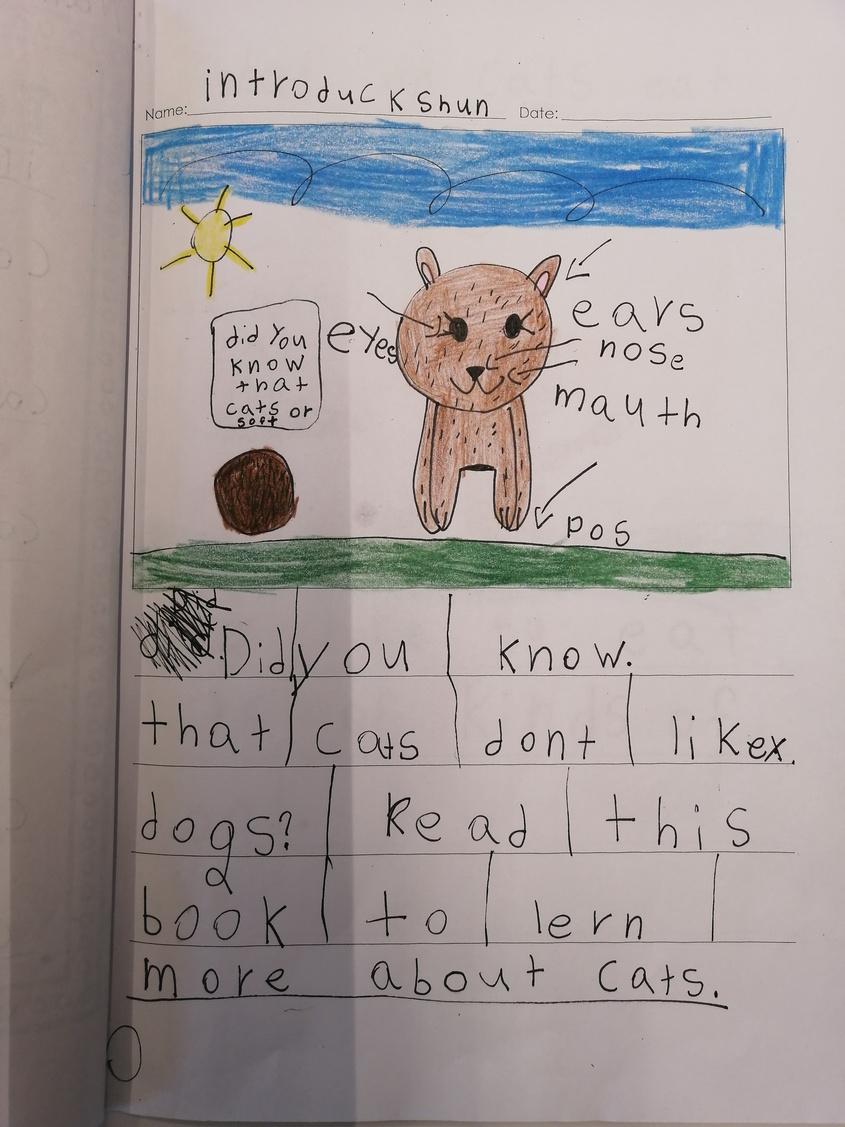 introduckshun
Name: Date:
did you
know
that
cats or
soft
eyes
ears
nose
mauth
pos
Did you know.
that cats dont likex.
dogs? Read this
book to lern
more about cats.